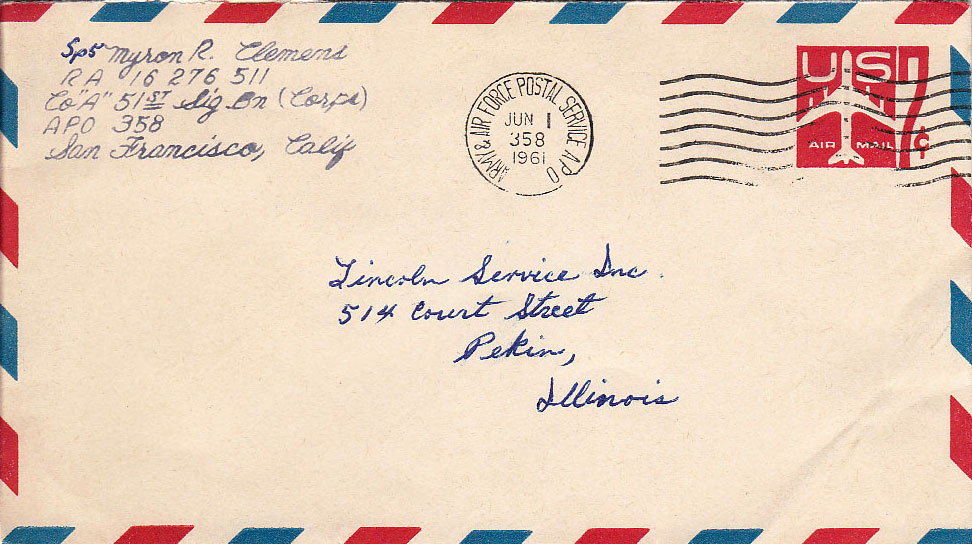 Sp5 Myron R. Clemens
RA 16 276 511
Co "A" 51ST Sig Bn (Corps)
APO 358
San Francisco, Calif
ARMY & AIR FORCE POSTAL SERVICE APO
JUN 1
358
1961
US
7¢
AIR MAIL
Lincoln Service Inc.
514 Court Street
Pekin,
Illinois